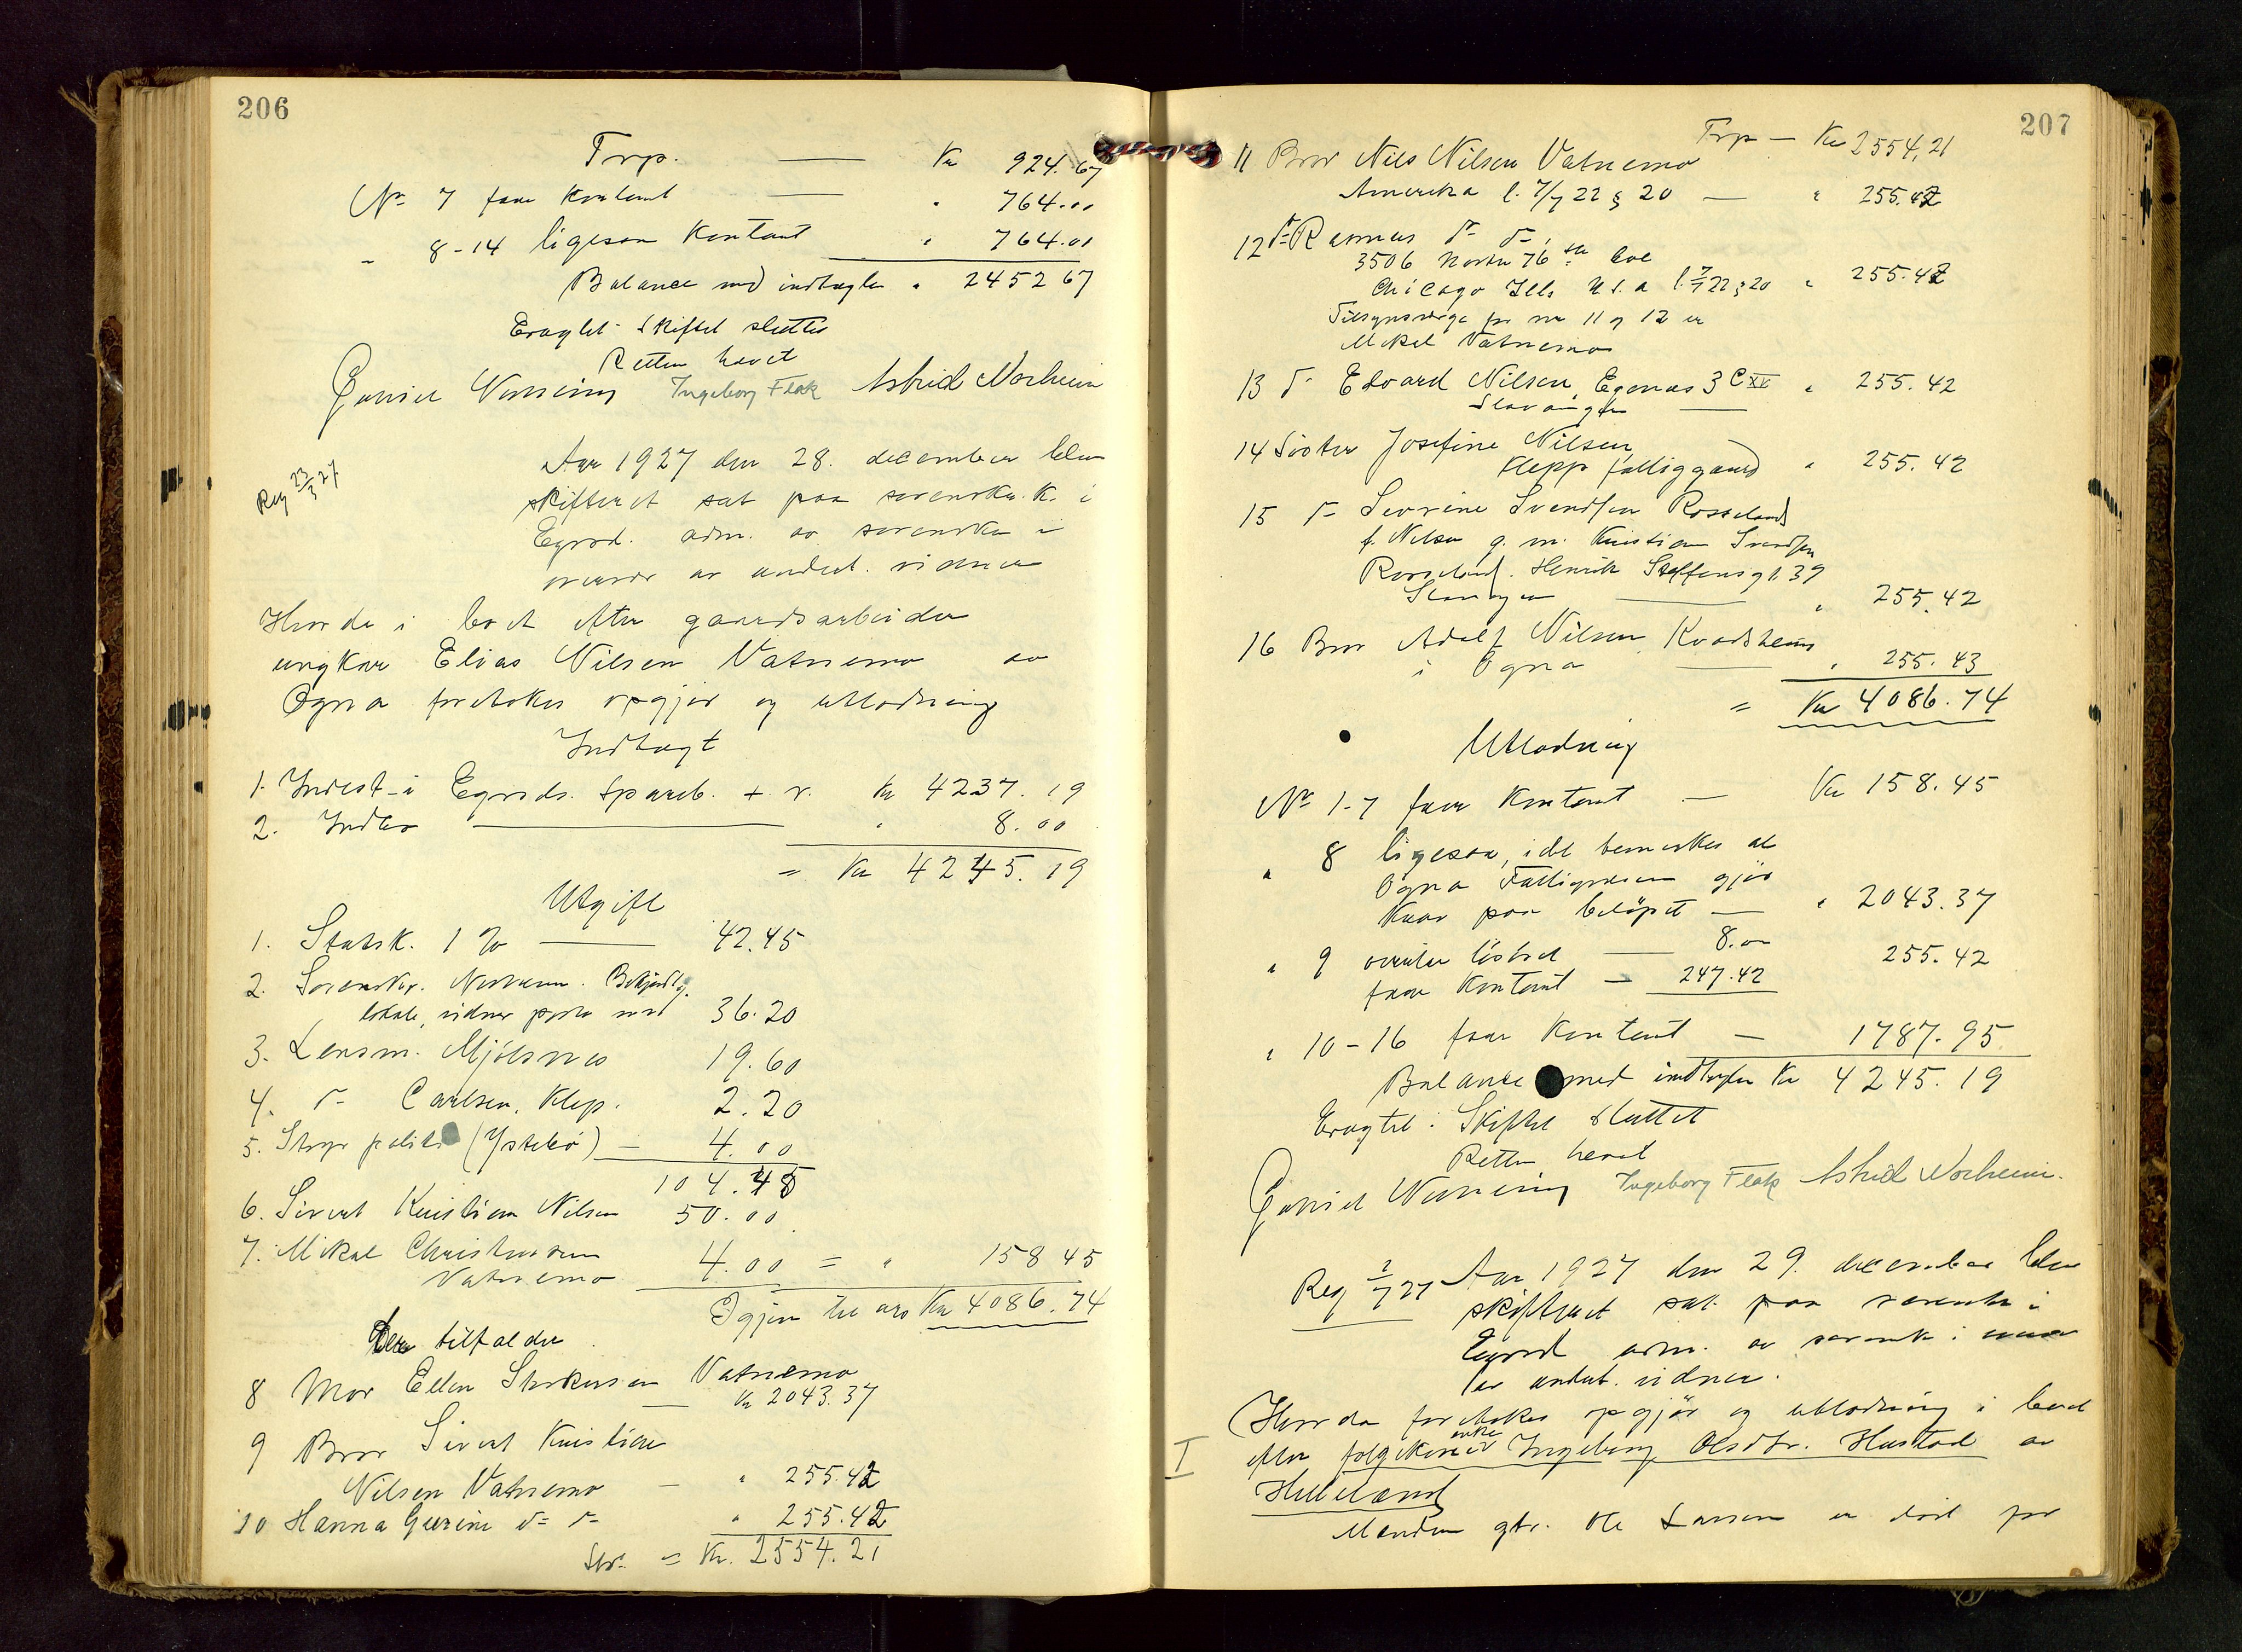 206
Trp. — Kr 924.67
No 7 faar kontant — " 764.00
" 8-14 ligesaa kontant " 764.00
Balance med indtægten " 2452 67
Eragtet: Skiftet sluttet
Retten hævet
Ingeborg Fløk Astrid Norheim
Reg 23/3 27
Aar 1927 den 28. december blev
skifteret sat paa sorenskr. k. i
Egersd. adm. av sorenskr. i
overvær av undert. vidner
Hvor da i boet efter gaardsarbeider
ungkar Elias Nilsen Vatnemo av
Ogna foretokes opgjør og utlodning
Indtægt
1. Indest. i Egersds. Spareb. + r. Kr 4237.19
2. Indbo — " 8.00
= Kr 4245.19
Utgift
1. Statsk. 1 % — 42.45
2. Sorenskr.
lokale, vidner porto m.m. 36.20
3. Lensm. Mjølsnes 19.60
4. d= Carlsen, Klep. 2.20
5. (Ystebø) — 4.00
104.45
6. Sivert Kristian Nilsen 50.00
7. Mikal Christensen
Vatnemo 4.00 = " 158 45
Igjen til arv Kr 4086.74
Den tilfalder
8 Mor Ellen Vatnemo
— Kr 2043.37
9 Bror Sivert Kristian
Nilsen Vatnemo — " 255.42
10 Hanna Gurine d= d= " 255.42
= Kr. 2554.21
207
Trp — Kr 2554,21
11 Bror Nils Nilsen Vatnemo
Amerika l. 7/7 22 § 20 — " 255.42
12 d= Rasmus d= d=,
3506 North 76 th Ave
Chicago Ills U.S.A l. 7/7 22 § 20 " 255.42
Tilsynsværge for nr 11 og 12 er
Mikal Vatnemo
13 d= Edvard Nilsen, Egenæs 3 C XV " 255.42
Stavanger —
14 Søster Josefine Nilsen,
Klepp fattiggaard " 255.42
15 d= Severine Svendsen Rosseland
f. Nilsen g. m. Kristian Svendsen
Rosseland. Henrik Steffensgt. 39
Stavanger — " 255.42
16 Bror Adolf Nilsen, Kvadsheim
i Ogna — " 255.43
= Kr 4086.74
Utlodning
No 1-7 faar kontant — Kr 158.45
" 8 ligesaa, idet bemerkes at
Ogna Fattigvæsen gjør
krav paa beløpet — " 2043.37
" 9 løsøret — 8.00 255.42
faar kontant — 247.42
" 10-16 faar kontant — 1787.95
Balance med indtægten Kr 4245.19
Eragtet: Skiftet sluttet
Retten hævet
Ingeborg Fløk Astrid Norheim.
Reg 2/7 27 Aar 1927 den 29. december blev
skifteret sat paa sorensk i
Egersd adm. av sorensk. i
av undert. vidner.
Hvor da foretokes opgjør og utlodning i boet
efter enke Ingeborg Olsdtr. Hustad av
I
Helleland
Manden gbr. Ole Larsen er død før